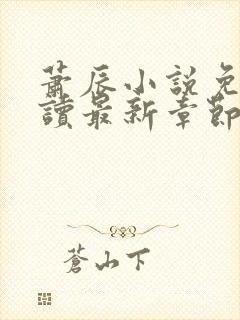 蕭辰小說免
讀最新章節
蒼山下